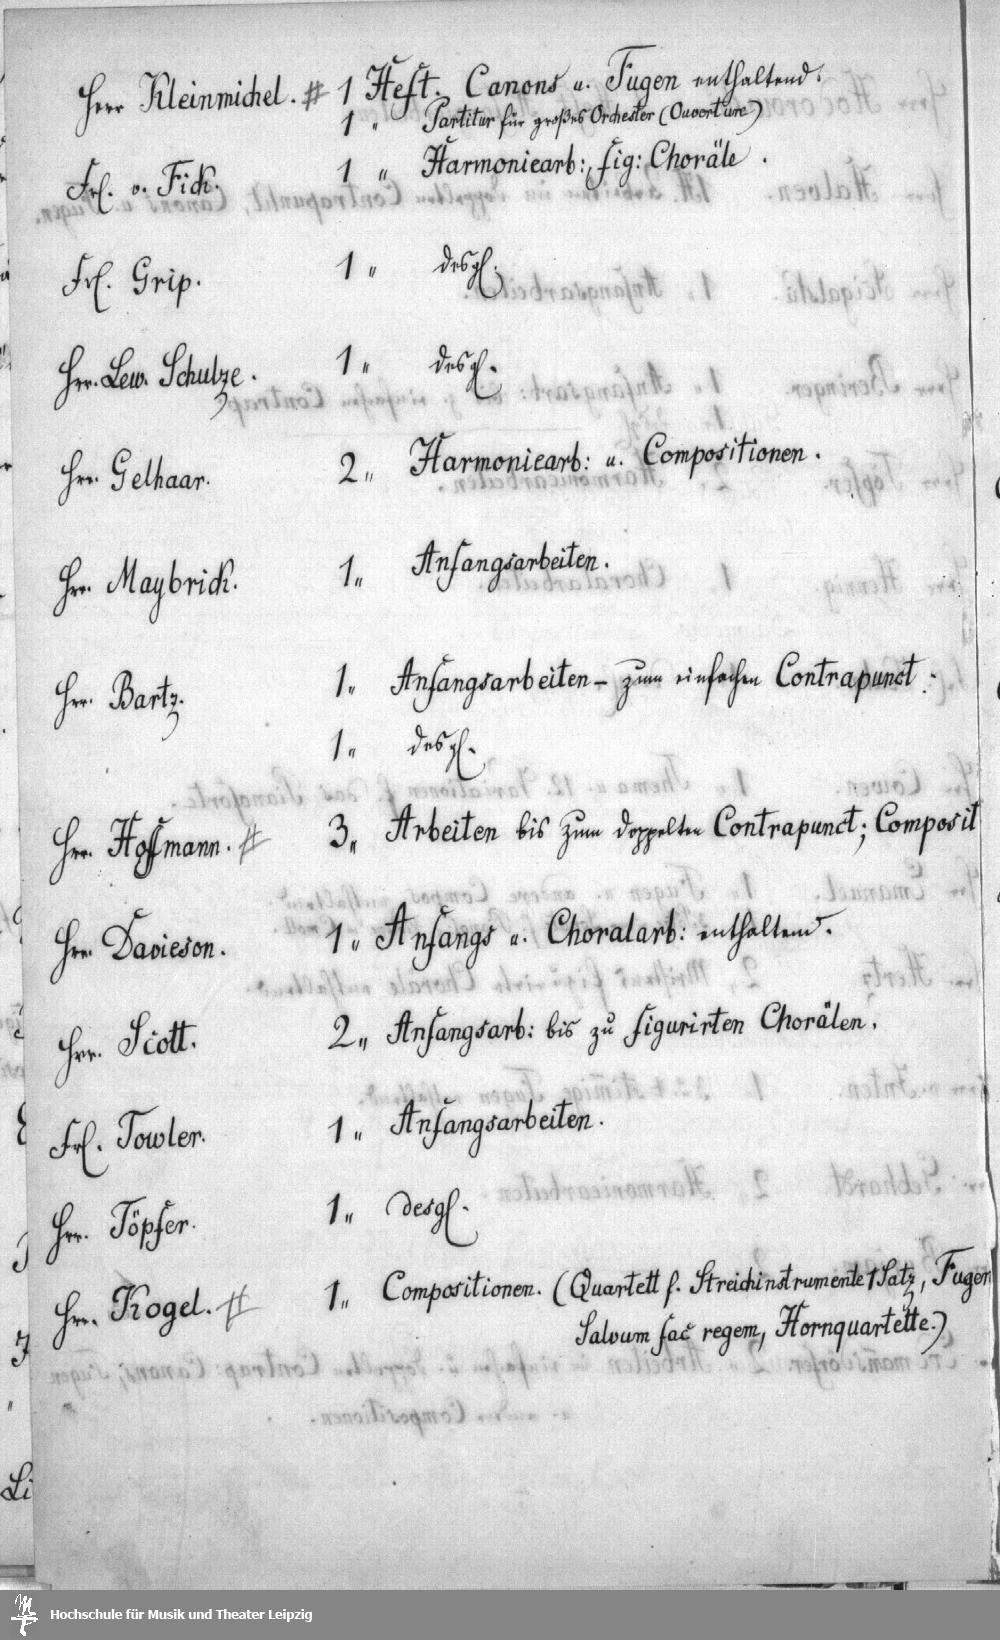 Herr Kleinmichel. # 1 Heft. Canons u. Fugen enthaltend.
1 " Partitur für großes Orchester (Ouverture)
Frl. v. Fick. 1 " Harmoniearb:, fig: Choräle.
Frl. Grip. 1 " desgl.
Hrr. Lew. Schulze. 1 " desgl.
Hrr. Gelhaar. 2 " Harmoniearb: u. Compositionen.
Hrr. Maybrick. 1 " Anfangsarbeiten.
Hrr. Bartz. 1 " Anfangsarbeiten – zum einfachen Contrapunct.
1 " desgl.
Hrr. Hoffmann. # 3 " Arbeiten bis zum doppelten Contrapunct; Composit
Hrr. Davieson. 1 " Anfangs u. Choralarb: enthaltend.
Hrr. Scott. 2 " Anfangsarb: bis zu figurirten Chorälen.
Frl. Towler. 1 " Anfangsarbeiten.
Hrr. Töpfer. 1 " desgl.
Hrr. Kogel. # 1 " Compositionen. (Quartett f. Streichinstrumente 1 Satz, Fugen
Salvum fac regem, Hornquartette.)
Hochschule für Musik und Theater Leipzig